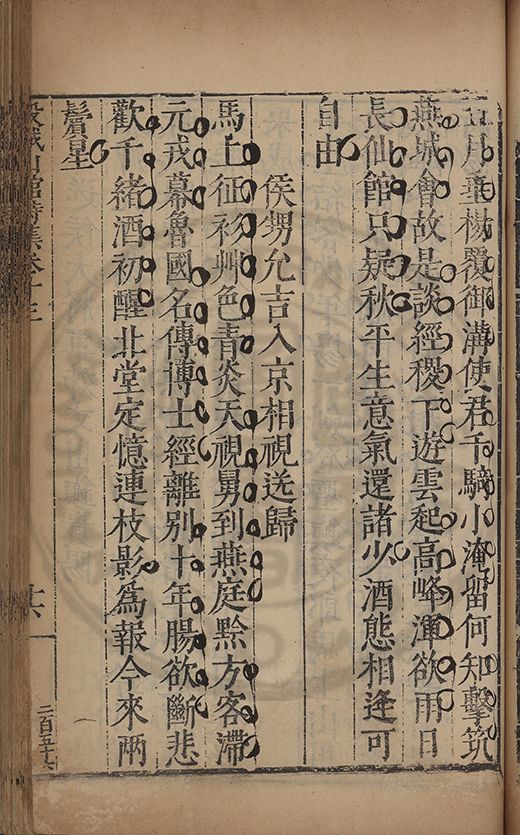 五月垂楊覆御溝使君千騎小淹留何知擊筑
燕城會故是談經稷下遊雲起高峰渾欲雨日
長仙館只疑秋平生意氣還諸少酒態相逢可
自由
侯甥允吉入京相視送歸
馬上征衫艸色青炎天視舅到燕庭黔方客滯
元戎幕魯國名傳博士經離别十年腸欲斷悲
歡千緒酒初醒北堂定憶連枝影爲報今來兩
鬢星
穀城山館詩集卷十三
十六
二百五十六